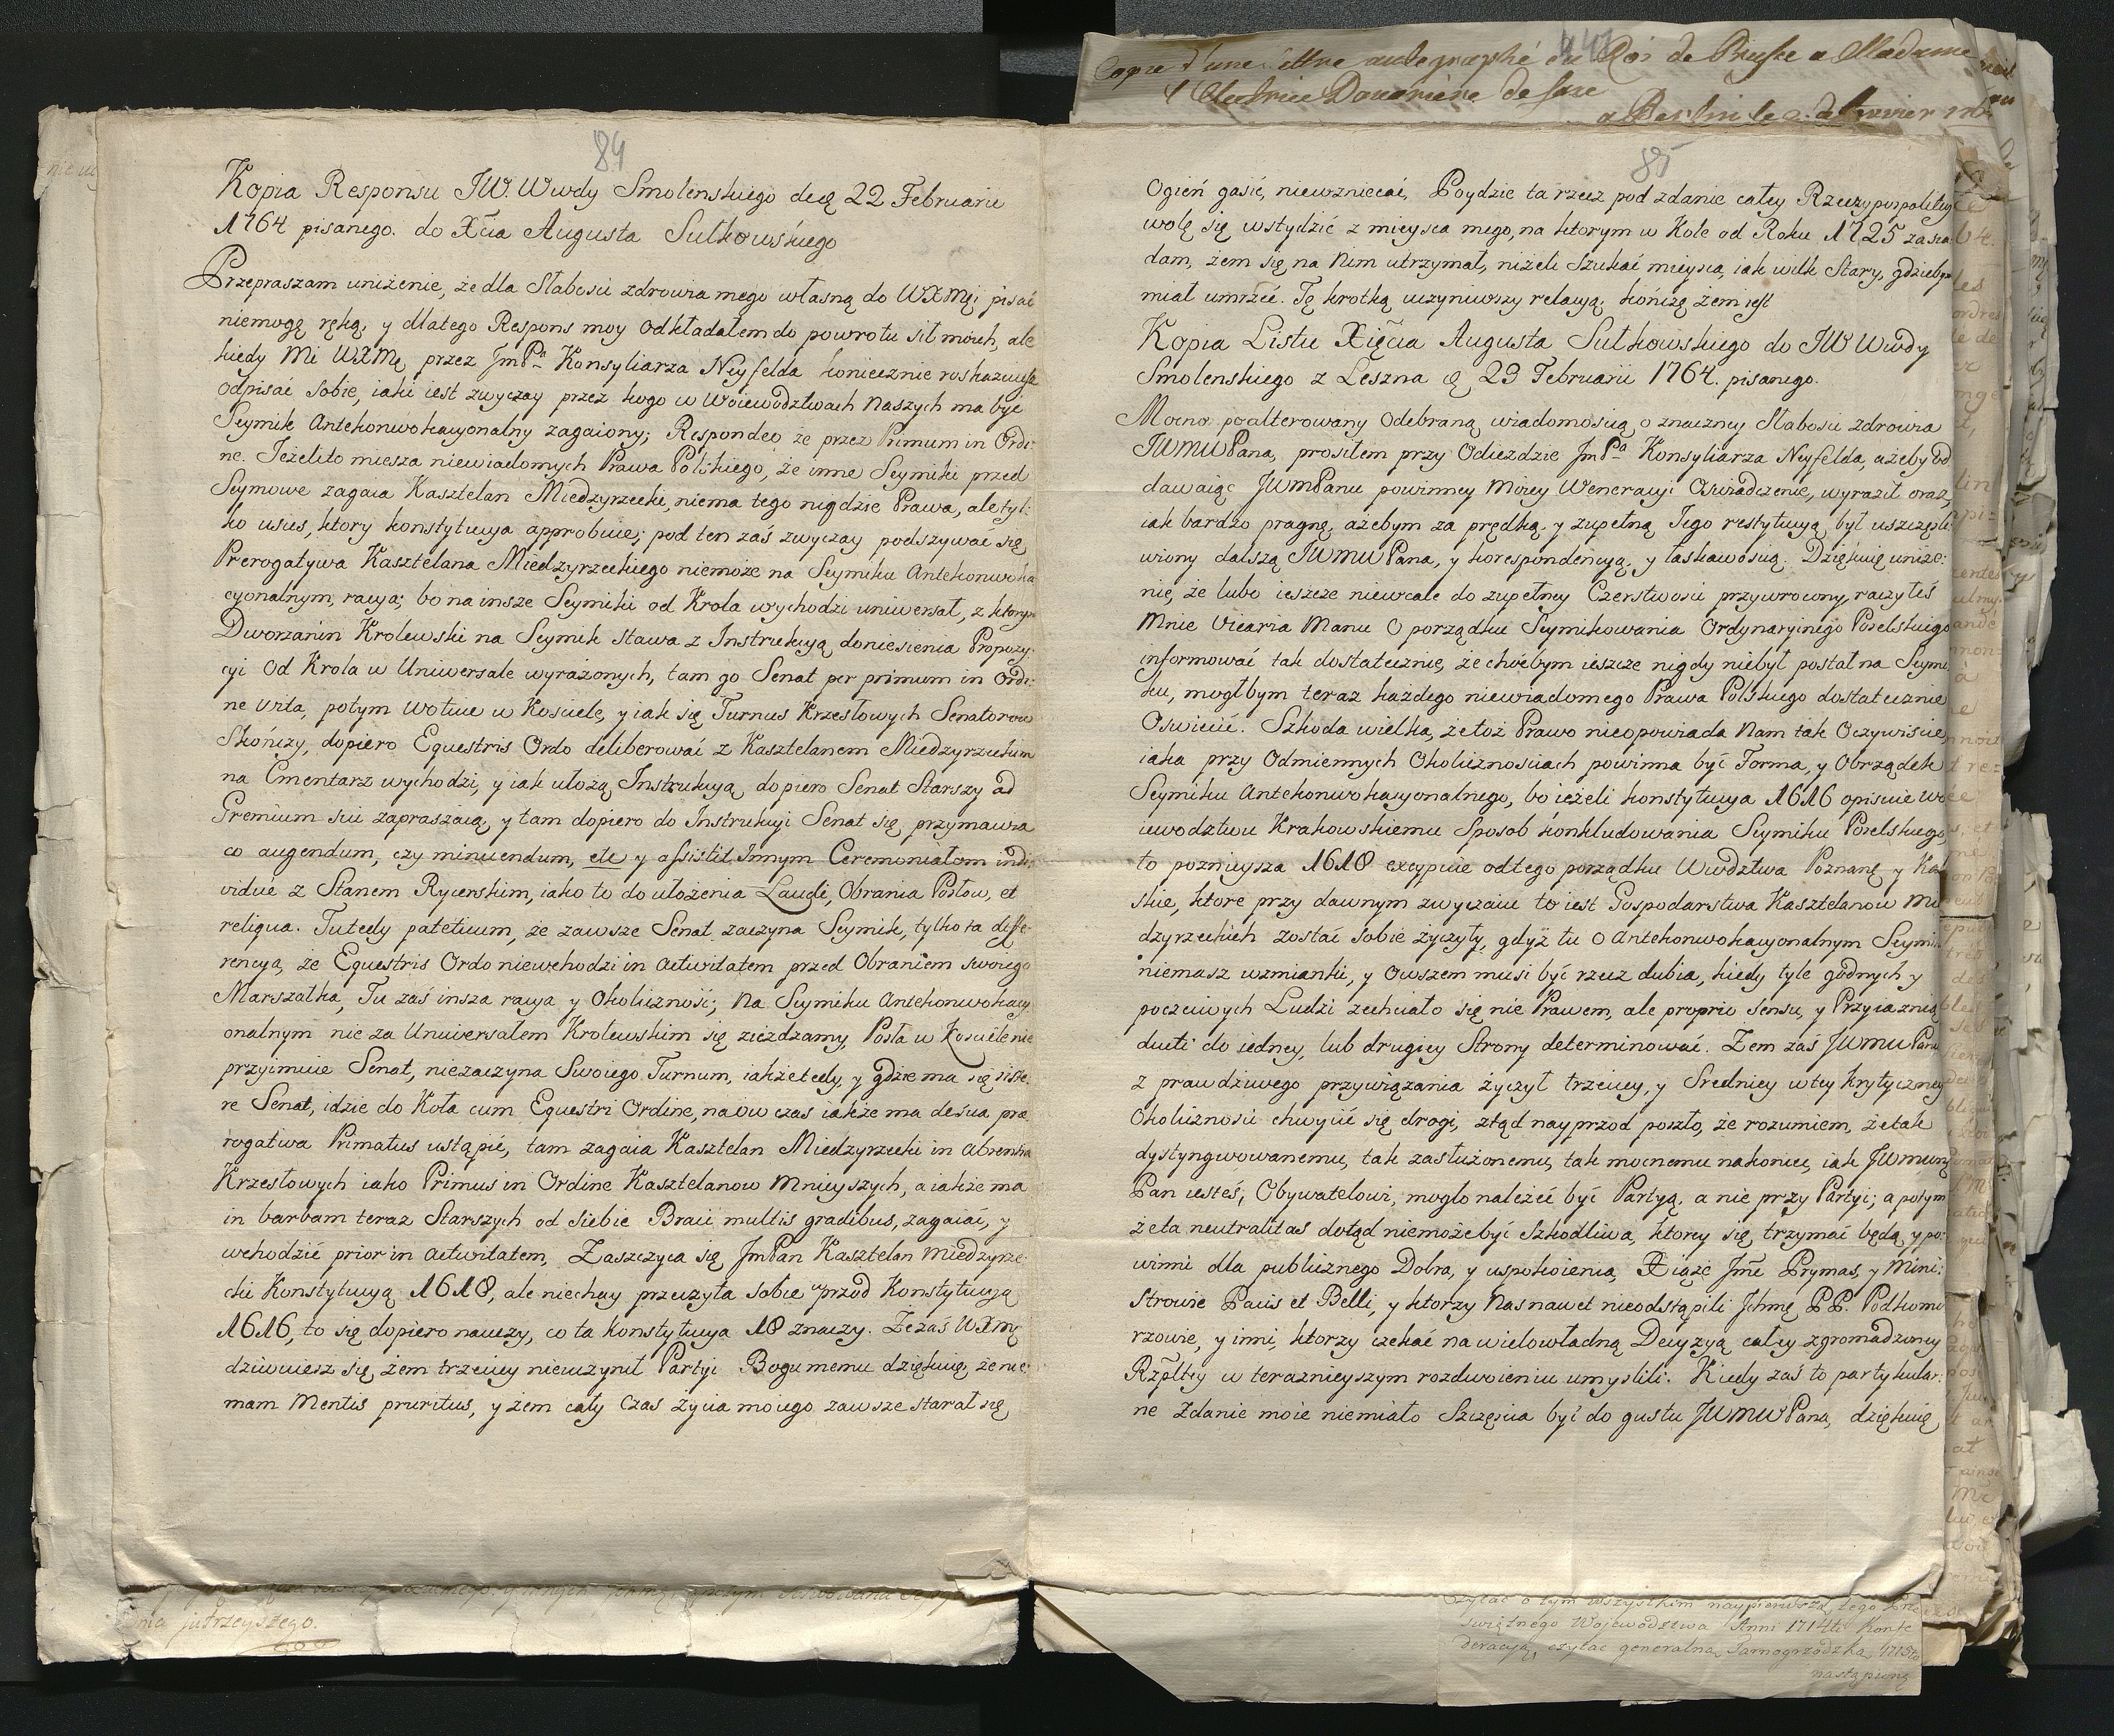 84
Kopia Responsu JW. Wwdy Smolenskiego de ą 22 Februarii
1764 pisanego. do Xcia Augusta Sułkowskiego
Przepraszam uniżenie, że dla Słabości zdrowia mego własną do WXMci pisać
niemogę ręką, y dlatego Respons moy odkładałem do powrotu sił moich, ale
kiedy Mi WXMę przez JmPa Konsyliarza Neyfelda koniecznie roskazuiesz
odpisać sobie, iaki iest zwyczay przez kogo w Woiewodztwach Naszych ma być
Seymik Antekonwokacyonalny zagaiony; Respondeo że przez Primum in Ordi:
ne. Jeżeli to miesza niewiadomych Prawa Polskiego, że inne Seymiki przed
Seymowe zagaia Kasztelan Miedzyrzecki, niema tego nigdzie Prawa, ale tyl:
ko usus, ktory konstytucya approbuie; pod ten zaś zwyczay podszywać się
Prerogatywa Kasztelana Miedzyrzeckiego niemoże na Seymiku Antekonwoka
cyonalnym, racya; bo na insze Seymiki od Krola wychodzi uniwersał, z ktorym
Dworzanin Krolewski na Seymik stawa z Instrukcyą doniesienia Propozy:
cyi od Krola w Uniwersale wyrażonych, tam go Senat per primum in Ordi:
ne wita, potym wotuie w Kosciele, y iak się Turnus Krzesłowych Senatorow
Skończy, dopiero Equestris Ordo deliberować z Kasztelanem Miedzyrzeckim
na Cmentarz wychodzi, y iak ułożą Instrukcyą dopiero Senat Starszy ad
Gremium sui zapraszaią, y tam dopiero do Instrukcyi Senat się przymawia
co augendum, czy minuendum, etc y assistit Innym Ceremoniałom indi:
vidue z Stanem Rycerskim, iako to do ułożenia Laudi, Obrania Posłow, et
reliqua. Tu tedy patet­icum, że zawsze Senat zaczyna Seymik, tylko ta diffe
rencya, że Equestris Ordo niewchodzi in activitatem przed Obraniem swoiego
Marszałka, Tu zaś insza racya y Okoliczność; Na Seymiku Antekonwokacy
onalnym nie za Uniwersałem Krolewskim się zieżdzamy, Posła w Kosciele nie
przyimuie Senat, niezaczyna Swoiego Turnum, iakże tedy, y gdzie ma się siste
re Senat, idzie do Koła cum Equestri Ordine, na ow czas iakże ma desua præ
rogativa Primatus ustąpić, tam zagaia Kasztelan Miedzyrzecki in absentia
Krzesłowych iako Primus in Ordine Kasztelanow Mnieyszych, a iakże ma
in barbam teraz Starszych od siebie Braci multis gradibus, zagaiać, y
wchodzić prior in activitatem, Zaszczyca się JmPan Kasztelan Miedzyrze
cki Konstytucyą 1618, ale niechay przeczyta sobie wprzod Konstytucyą
1616, to się dopiero nauczy, co ta konstytucya 18 znaczy. Że zaś WXMę
dziwuiesz się, żem trzeciey nieuczynił Partyi Bogu memu dziękuię, że nie
mam Mentis pruritus, y żem cały czas życia moiego zawsze starał się
85
Ogień gasić, niewzniecać, Poydzie ta rzecz pod zdanie całey Rzeczypospolitey
wolę się wstydzić z mieysca mego, na ktorym w Kole od Roku 1725 zasia
dam, żem się na Nim utrzymał, niżeli szukać mieysca, iak wilk Stary, gdziebym
miał umrzeć. Tę krotką uczyniwszy relacyą, kończę żem iest
Kopia Listu Xięcia Augusta Sułkowskiego do JW Wwdy
Smolenskiego z Leszna ą 29 Februarii 1764. pisanego.
Mocno poalterowany Odebraną wiadomością o znaczney Słabości zdrowia
JWMWPana, prosiłem przy Odieżdzie JmPa Konsyliarza Neyfelda, ażeby od
dawaiąc JWmPanu powinney Moiey Weneracyi Oświadczenie, wyraził oraz,
iak bardzo pragnę, ażebym za prędką y zupełną Jego restytucyą był uszczęśli
wiony dalszą JWMWPana, y korespondencyą, y łaskawością. Dziękuię uniże:
nie, że lubo ieszcze niewcale do zupełney Czerstwości przywrocony, raczyłeś
Mnie Vicaria Manu O porządku Seymikowania Ordynaryinego Poselskiego
informować tak dostatecznie, że choćbym ieszcze nigdy niebył postał na Seymi
ku, mogłbym teraz każdego niewiadomego Prawa Polskiego dostatecznie
Oswiecić. Szkoda wielka, że toż Prawo nieopowiada Nam tak Oczywiście,
iaka przy Odmiennych Okolicznościach powinna być Forma, y Obrządek
Seymiku Antekonwokacyonalnego, bo ieżeli konstytucya 1616 opisuie Wo
iewodztwu Krakowskiemu Sposob konkludowania Seymiku Poselskiego,
to poznieysza 1618 excypuie od tego porządku Wwdztwa Poznanę y Kal
skie, ktore przy dawnym zwyczaiu to iest Gospodarstwa Kasztelanow Mie
dzyrzeckich zostać sobie życzyły, gdyż tu o Antekonwokacyonalnym Seymiku
niemasz wzmianki, y owszem musi być rzecz dubia, kiedy tyle godnych y
poczciwych Ludzi zechciało się nie Prawem, ale proprio Sensu, y Przyiaznią
ducti do iedney, lub drugiey Strony determinować. Żem zaś JWMWPanu
z prawdziwego przywiązania życzył trzeciey, y Sredniey w tey krytyczney
Okoliczności chwycić się drogi, ztąd nayprzod poszło, że rozumiem, że tak
dystyngwowanemu, tak zasłużonemu, tak mocnemu nakoniec, iak JWMWM
Pan iesteś, Obywatelowi, mogło należeć być Partyą, a nie przy Partyi; a potym
że ta neutralitas dotąd niemoże być szkodliwa, ktorey się trzymać będą y po
winni dla publicznego Dobra, y uspokoienia, Xiąże Jmć Prymas, y Mini:
strowie Pacis et Belli, y ktorzy Nas nawet nieodstąpili Ichmę PP. Podkomo
rzowie, y inni, ktorzy czekać na wielowładną Decyzyą całey zgromadzoney
Rzpltey w teraznieyszym rozdwoieniu umyslili. Kiedy zaś to partykular:
ne Zdanie moie niemiało Szczęscia być do gustu JWMWPana, dziękuię
Copie d'une lettre autographe du Roi de Prusse a Madame
l'Electrice Douariere de Saxe
a Berlin le
Dnia jutrzeyszego.
czytać o tym wszystkim naypierwszą tego Prze
świętnego Wojewodztwa Anni 1714ti Konfe
deracyą, czytać generalną Tarnogrodzką 1715to
nastąpioną